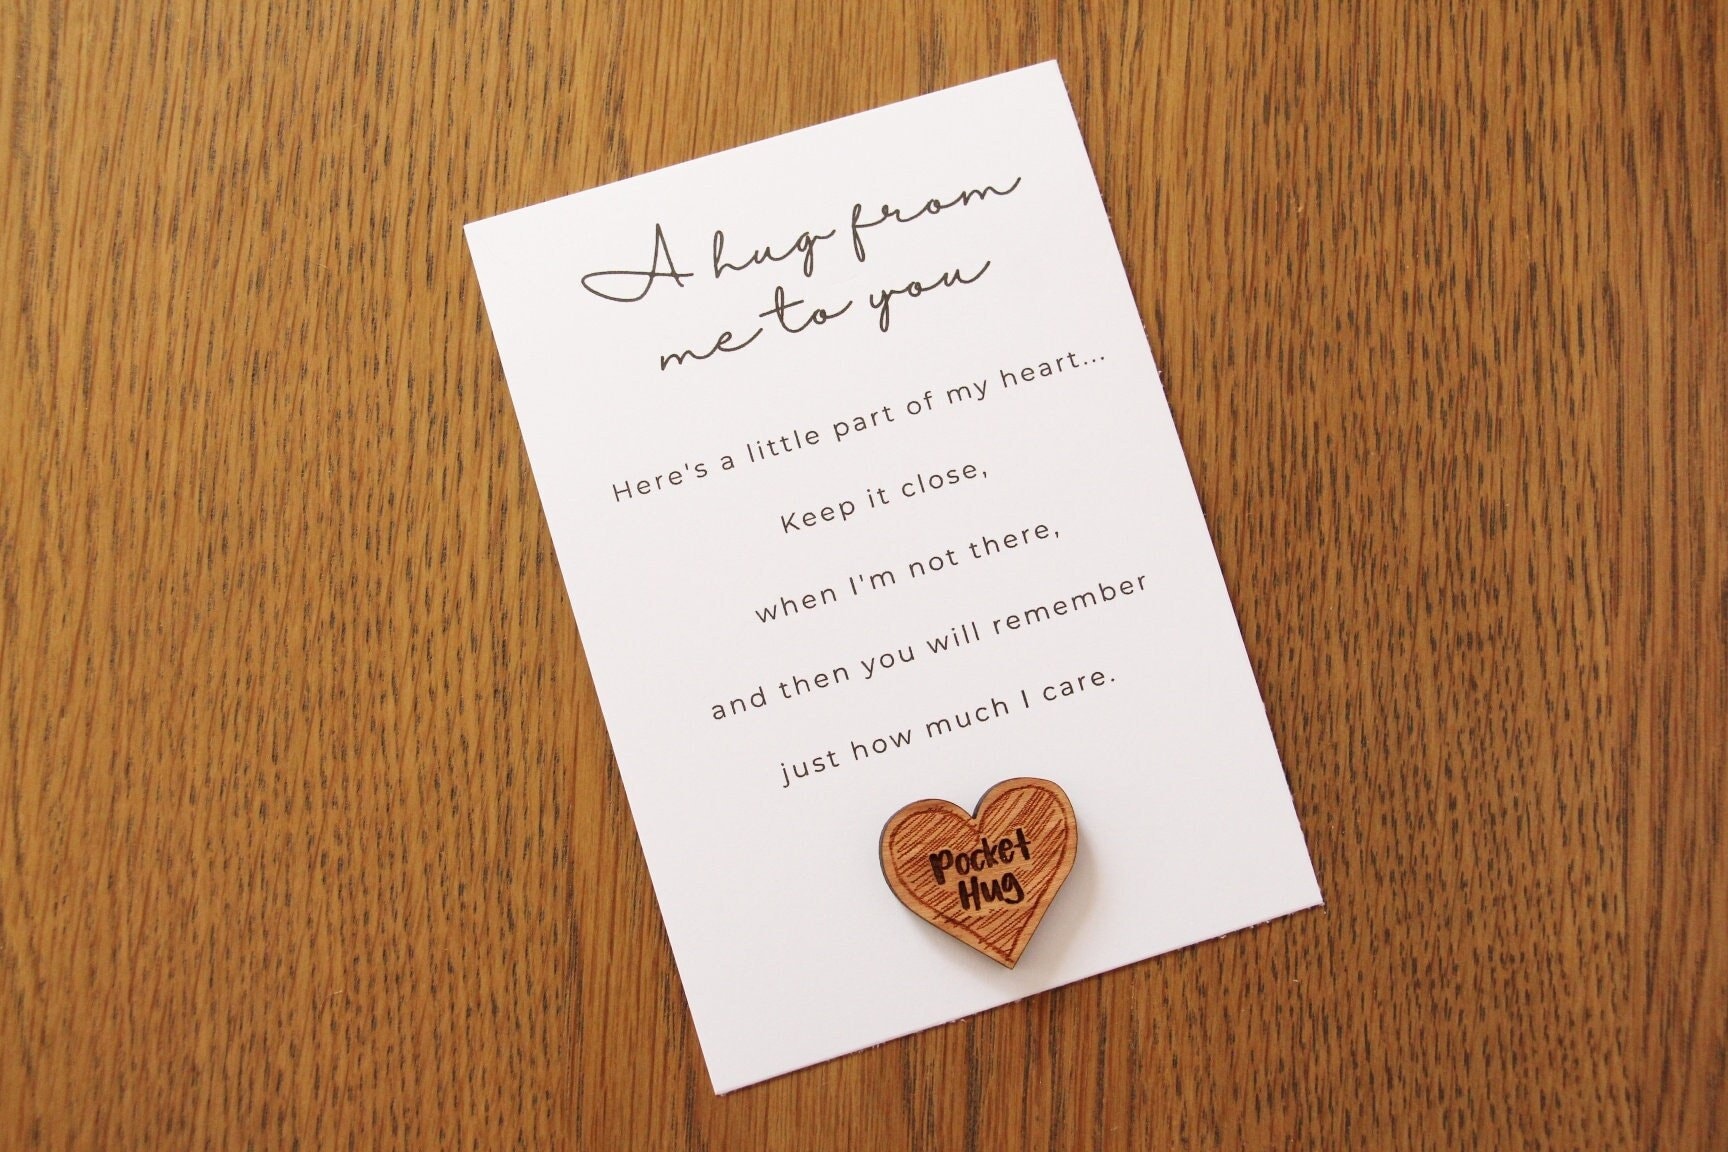 A hug from
me to you
Here's a little part of my heart...
Keep it close,
when I'm not there,
and then you will remember
just how much I care.
Pocket
Hug